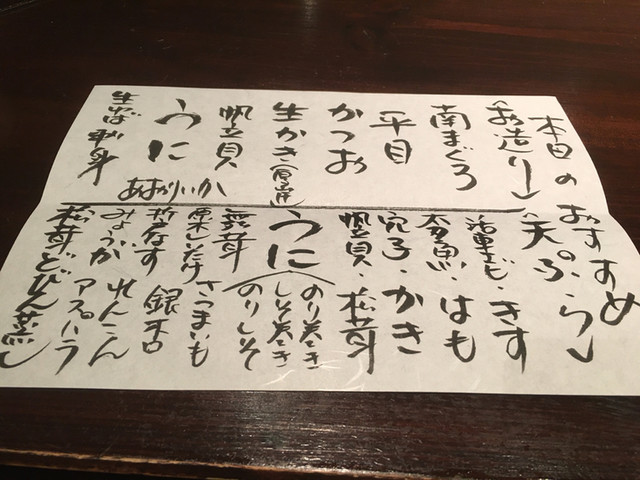 本日のおすすめ
<お造り>
南まぐろ
平目
かつお
生かき(厚岸)
帆立貝
うに
あおりいか
生ゆば刺身
<天ぷら>
活車えび・きす
太刀魚・はも
穴子・かき
帆立貝・松茸
うに
のり巻き
しそ巻き
のりしそ
舞茸
原木しいたけ
さつまいも
折戸なす
銀杏
みょうが
れんこん
アスパラ
松茸どびん蒸し